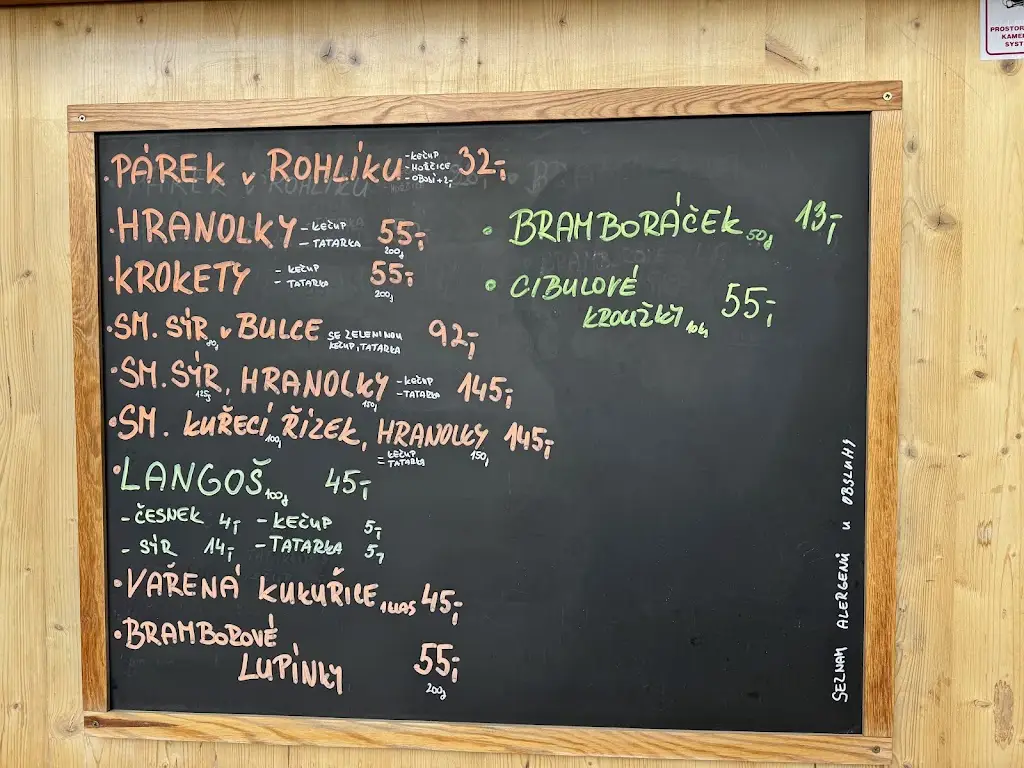 PÁREK v ROHLÍKU -KEČUP -HOŘČICE -OBOJÍ+2,- 32,-
HRANOLKY -KEČUP -TATARKA 55,- 200g
KROKETY -KEČUP -TATARKA 55,- 200g
SM. SÝR v BULCE SE ZELENINOU KEČUP, TATARKA 92,-
SM. SÝR, HRANOLKY -KEČUP -TATARKA 145,- 125g 150g
SM. KUŘECÍ ŘÍZEK, HRANOLKY 145,- 100g 150g
= KEČUP TATARKA
LANGOŠ 100g 45,-
-ČESNEK 4,- -KEČUP 5,-
-SÝR 14,- -TATARKA 5,-
VAŘENÁ KUKUŘICE 1KLAS 45,-
BRAMBOROVÉ
LUPÍNKY 55,- 200g
BRAMBORÁČEK 50g 13,-
CIBULOVÉ
KROUŽKY 10ks 55,-
SEZNAM ALERGENŮ U OBSLUHY
PROSTOR
KAMER
SYST